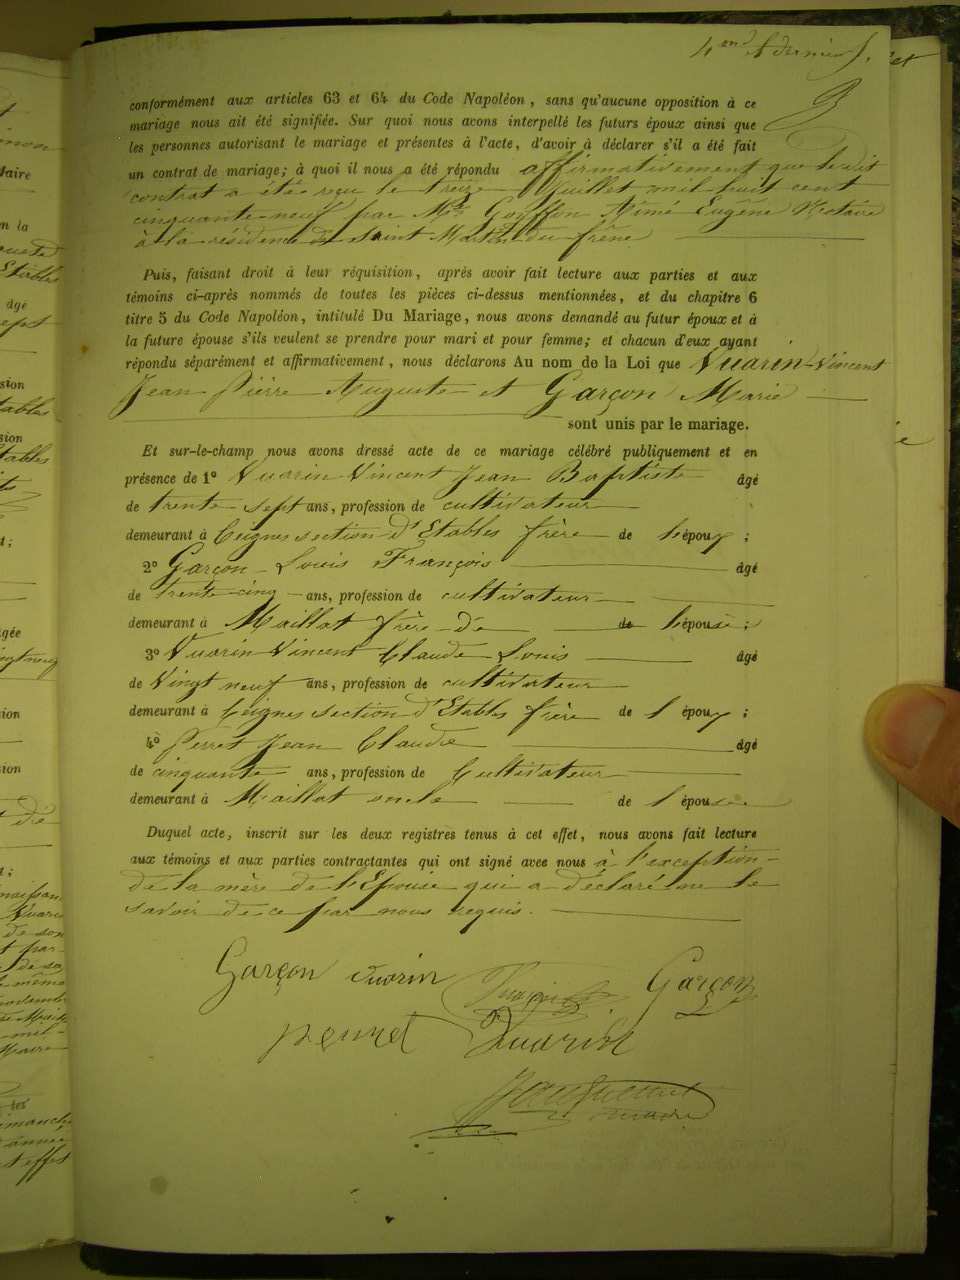 4me & dernier f.
conformément aux articles 63 et 64 du Code Napoléon, sans qu'aucune opposition à ce
mariage nous ait été signifiée. Sur quoi nous avons interpellé les futurs époux ainsi que
les personnes autorisant le mariage et présentes à l'acte, d'avoir à déclarer s'il a été fait
un contrat de mariage; à quoi il nous a été répondu affirmativement que le dit
contrat a été reçu le treize Juillet mil huit cent
cinquante-neuf par Me Goyffon Aimé Eugène Notaire
à la résidence de Saint Martin du frêne
Puis, faisant droit à leur réquisition, après avoir fait lecture aux parties et aux
témoins ci-après nommés de toutes les pièces ci-dessus mentionnées, et du chapitre 6
titre 5 du Code Napoléon, intitulé Du Mariage, nous avons demandé au futur époux et à
la future épouse s'ils veulent se prendre pour mari et pour femme; et chacun d'eux ayant
répondu séparément et affirmativement, nous déclarons Au nom de la Loi que Vuarin-Vincent
Jean Pierre Auguste et Garçon Marie
sont unis par le mariage.
Et sur-le-champ nous avons dressé acte de ce mariage célébré publiquement et en
présence de 1° Vuarin Vincent Jean Baptiste âgé
de trente sept ans, profession de cultivateur
demeurant à Ceignes section d'Etables frère de l'époux;
2° Garçon Louis François âgé
de trente-cinq ans, profession de cultivateur
demeurant à Maillat frère de de l'épouse;
3° Vuarin-Vincent Claude Louis âgé
de Vingt neuf ans, profession de cultivateur
demeurant à Ceignes section d'Etables frère de l'époux;
4° Perret Jean Claude âgé
de cinquante ans, profession de Cultivateur
demeurant à Maillat oncle de l'épouse
Duquel acte, inscrit sur les deux registres tenus à cet effet, nous avons fait lecture
aux témoins et aux parties contractantes qui ont signé avec nous à l'exception
de la mère de l'Epouse qui a déclaré ne le
savoir de ce par nous requis.
Garçon Vuarin Garçon
perret Vuarin
maire